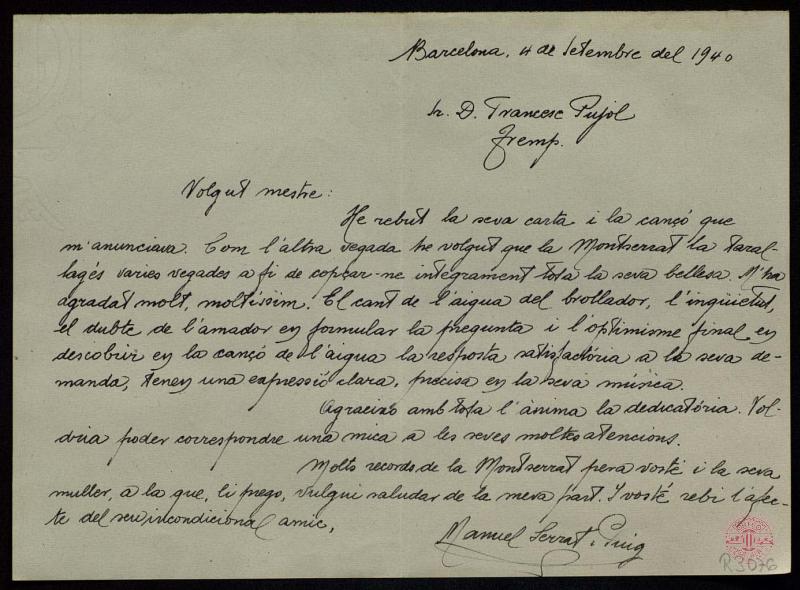 Barcelona, 4 de Setembre del 1940
Sr. D. Francesc Pujol
Tremp.
Volgut mestre:
He rebut la seva carta i la cançó que
m'anunciava. Com l'altra vegada he volgut que la Montserrat la taral-
lagés varies vegades a fi de copçar-ne integrament tota la seva bellesa. M'ha
agradat molt, moltíssim. El cant de l'aigua del brollador, l'inquietut,
el dubte de l'amador en formular la pregunta i l'optimisme final en
descobrir en la cançó de l'aigua la resposta satisfactória a la seva de-
manda, tenen una expressió clara, precisa en la seva música.
Agraeixo amb tota l'ànima la dedicatória. Vol-
dria poder correspondre una mica a les seves moltes atencions.
Molts records de la Montserrat per a vosté i la seva
muller, a la que, li prego, vulgui saludar de la meva part. I vosté rebi l'afec-
te del seu incondicional amic,
Manuel Serrat i Puig
R3076